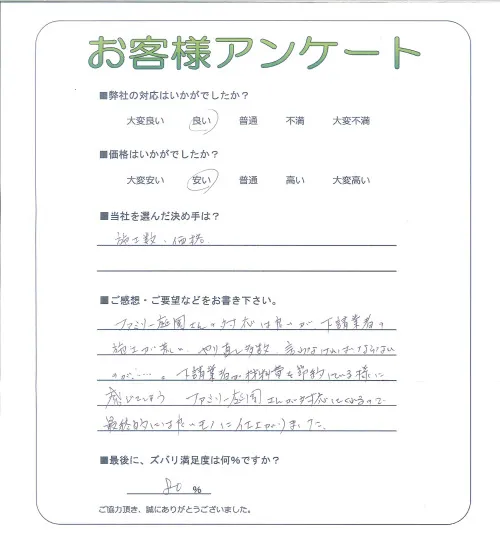 お客様アンケート
■弊社の対応はいかがでしたか?
大変良い 良い 普通 不満 大変不満
■価格はいかがでしたか?
大変安い 安い 普通 高い 大変高い
■当社を選んだ決め手は?
施工数・価格
■ご感想・ご要望などをお書き下さい。
ファミリー庭園さんの対応は良いが、下請業者の
施工が荒い、やり直し多数、言わなければならない
のが……。下請業者が材料費を節約している様に
感じてしまう ファミリー庭園さんが対応してくれるので
最終的には良いモノに仕上がりました。
■最後に、ズバリ満足度は何%ですか?
80 %
ご協力頂き、誠にありがとうございました。